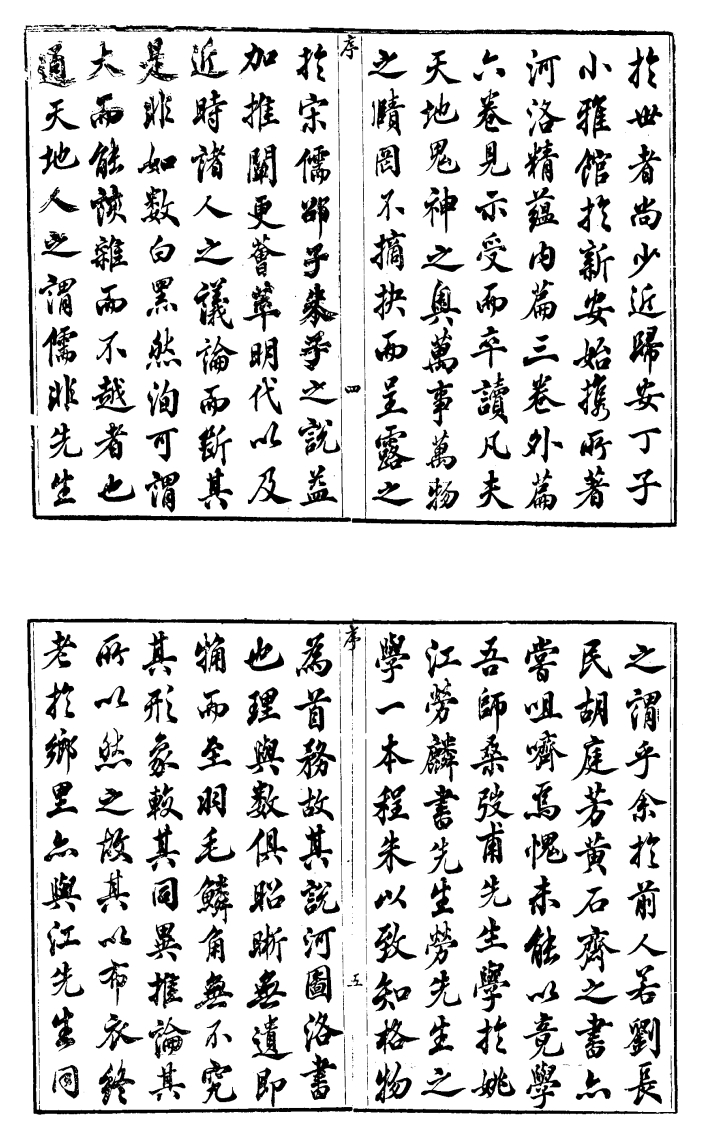 於世者尚少近歸安丁子
小雅館於新安始攜所著
河洛精蘊內篇三卷外篇
六卷見示受而卒讀凡夫
天地鬼神之奧萬事萬物
之賾罔不摘抉而呈露之
序
四
於宋儒邵子朱子之說益
加推闡更薈萃明代以及
近時諸人之議論而斷其
是非如數白黑然洵可謂
大而能談雜而不越者也
通天地人之謂儒非先生
之謂乎余於前人若劉長
民胡庭芳黃石齊之書亦
嘗咀嚌焉愧未能以竟學
吾師桑弢甫先生學於姚
江勞麟書先生勞先生之
學一本程朱以致知格物
序
五
為首務故其說河圖洛書
也理與數俱昭晰無遺即
物而至羽毛鱗角無不究
其形象較其同異推論其
所以然之故其以布衣終
老於鄉里亦與江先生同